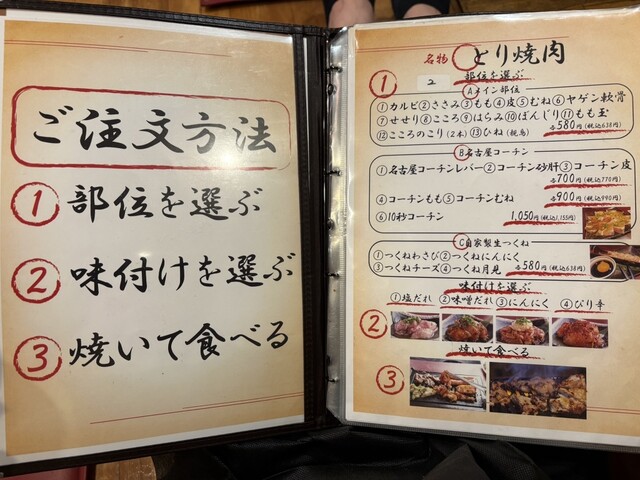 ご注文方法
① 部位を選ぶ
② 味付けを選ぶ
③ 焼いて食べる
名物 とり焼肉
① 部位を選ぶ
2
Ⓐメイン部位
①カルビ②ささみ③もも④皮⑤むね⑥ヤゲン軟骨
⑦せせり⑧こころ⑨はらみ⑩ぼんじり⑪もも玉
⑫こころのこり(2本)⑬ひね(親鳥) 各580円(税込638円)
Ⓑ名古屋コーチン
①名古屋コーチンレバー②コーチン砂肝③コーチン皮
各700円(税込770円)
④コーチンもも⑤コーチンむね 各900円(税込990円)
⑥10秒コーチン 1,050円(税込1,155円)
Ⓒ自家製生つくね
①つくねわさび②つくねにんにく
③つくねチーズ④つくね月見 各580円(税込638円)
味付けを選ぶ
①塩だれ ②味噌だれ ③にんにく ④ぴり辛
②
焼いて食べる
③